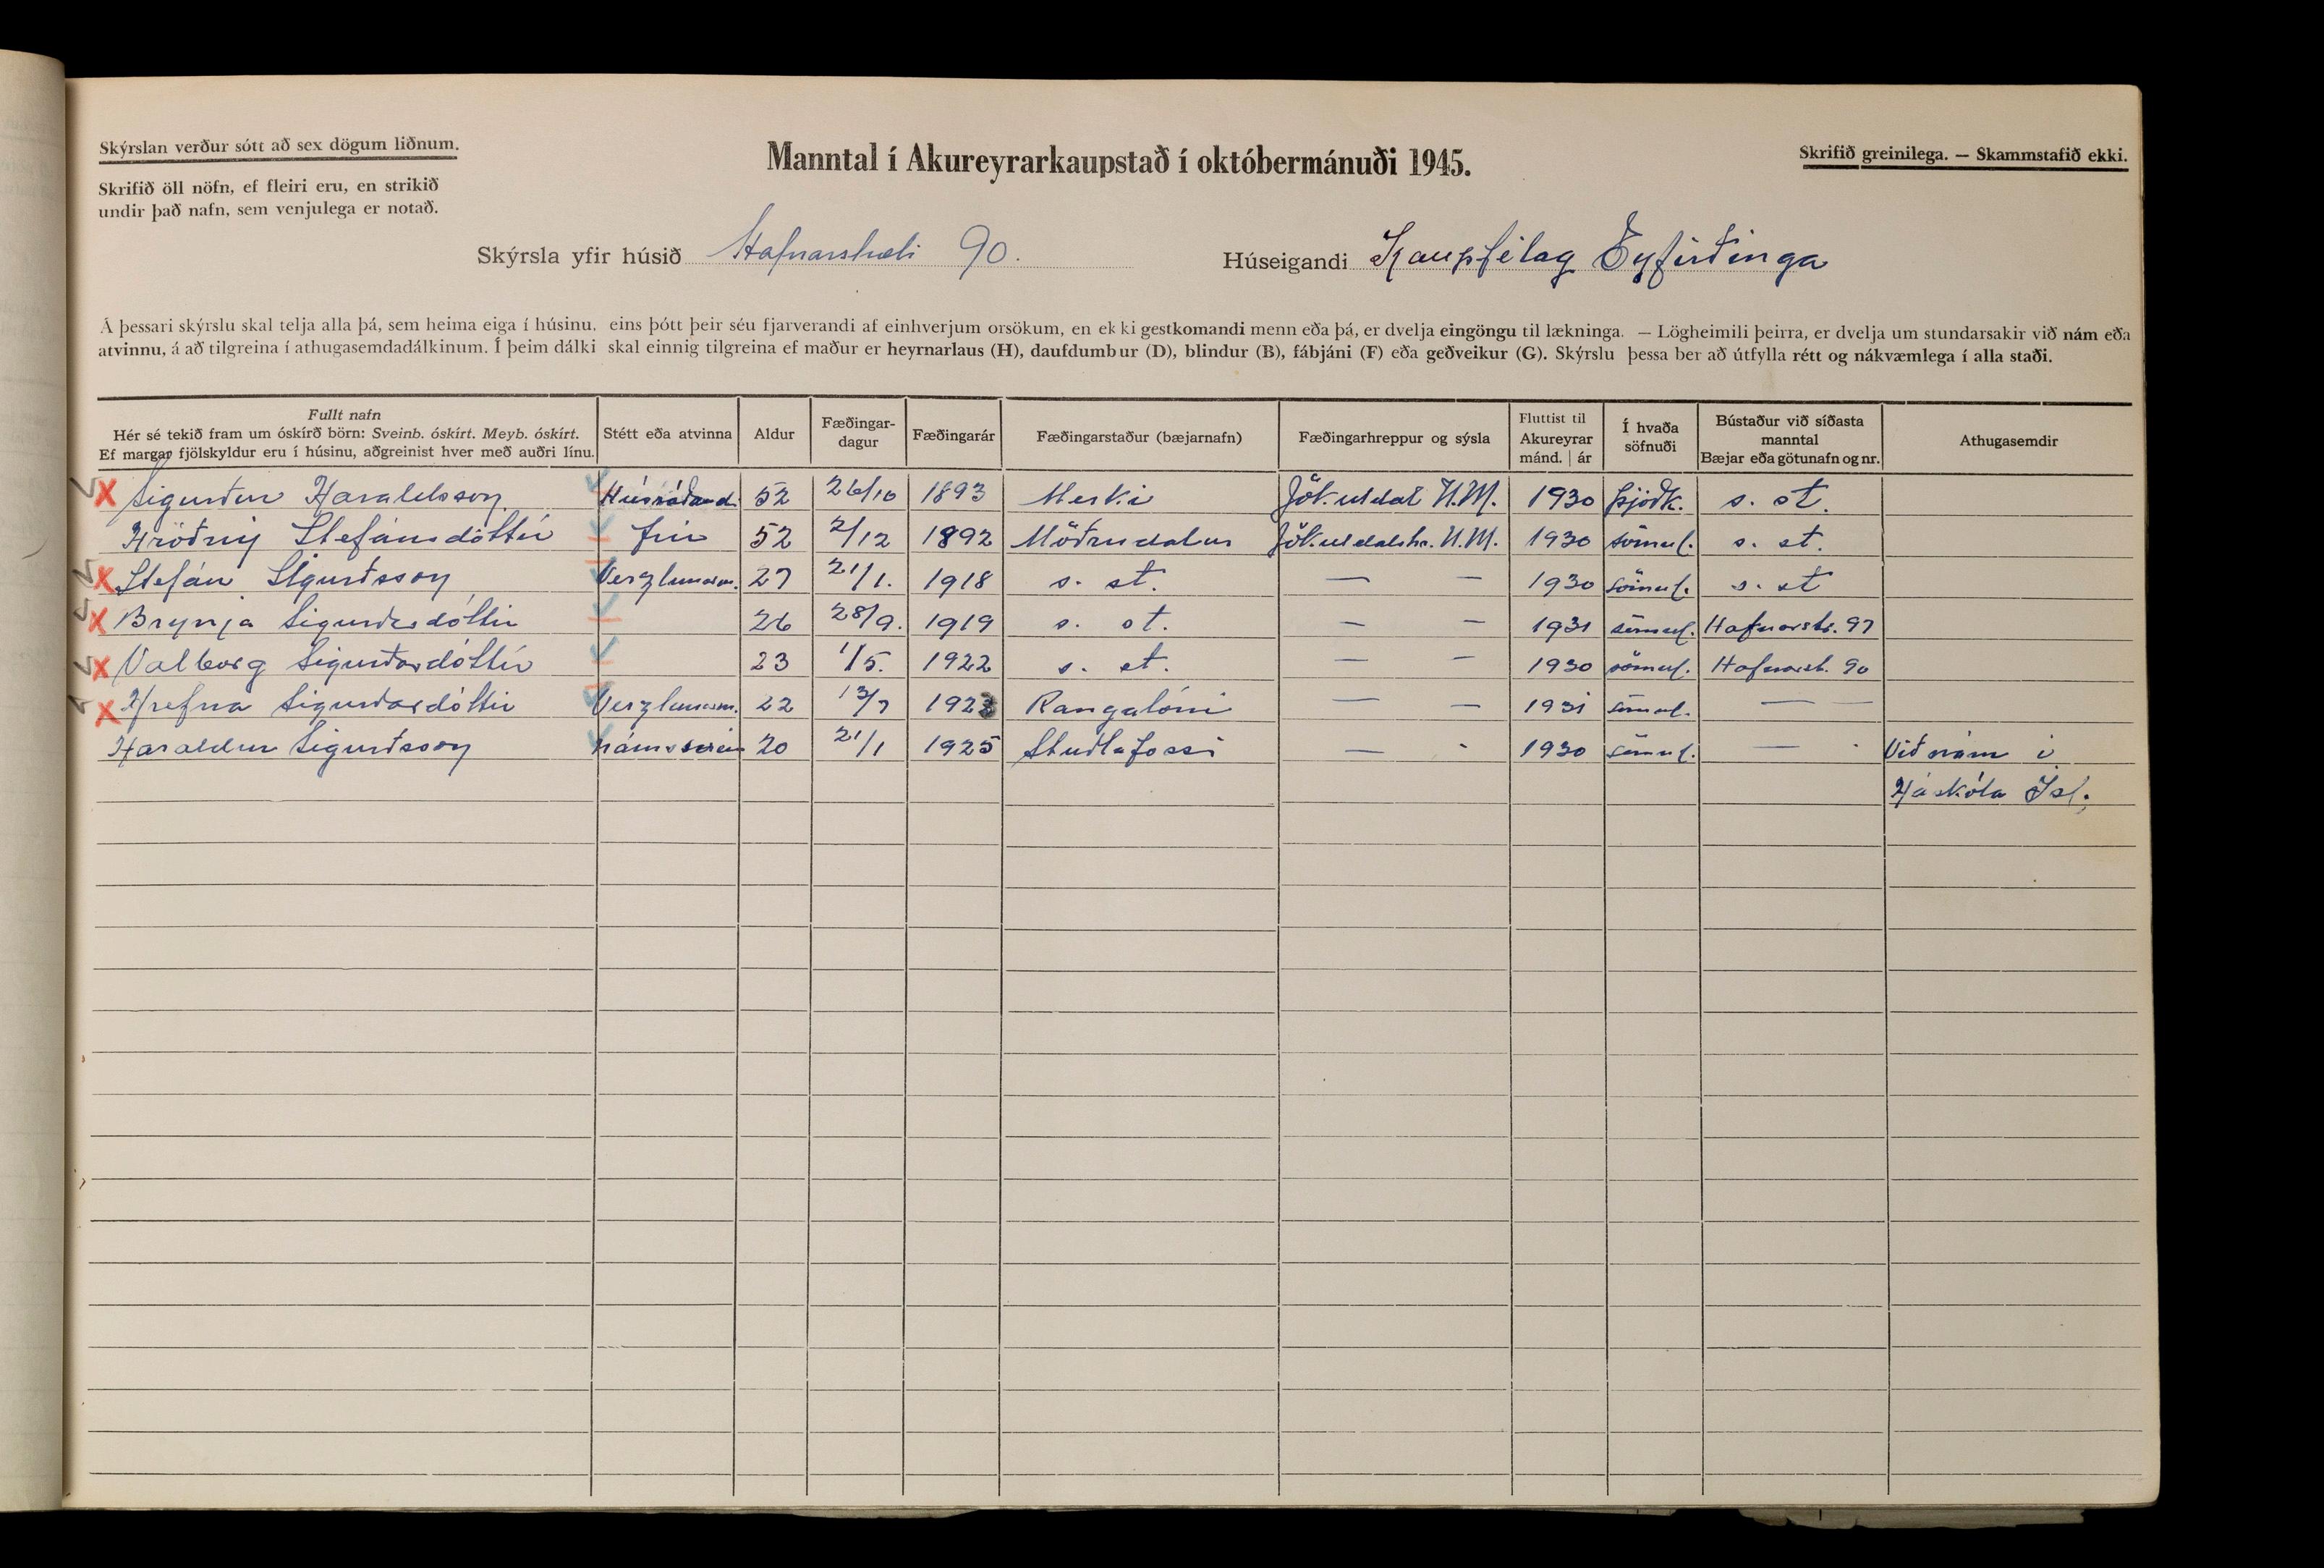 Skýrslan verður sótt að sex dögum liðnum.
Skrifið öll nöfn, ef fleiri eru, en strikið
undir það nafn, sem venjulega er notað.
Manntal í Akureyrarkaupstað í októbermánuði 1945.
Skrifið greinilega. — Skammstafið ekki.
Skýrsla yfir húsið Hafnarstræti 90.
Húseigandi Kaupfélag Eyfirðinga
Á þessari skýrslu skal telja alla þá, sem heima eiga í húsinu, eins þótt þeir séu fjarverandi af einhverjum orsökum, en ekki gestkomandi menn eða þá, er dvelja eingöngu til lækninga. — Lögheimili þeirra, er dvelja um stundarsakir við nám eða
atvinnu, á að tilgreina í athugasemdadálkinum. Í þeim dálki skal einnig tilgreina ef maður er heyrnarlaus (H), daufdumbur (D), blindur (B), fábjáni (F) eða geðveikur (G). Skýrslu þessa ber að útfylla rétt og nákvæmlega í alla staði.
Fullt nafn
Hér sé tekið fram um óskírð börn: Sveinb. óskírt. Meyb. óskírt.
Ef margar fjölskyldur eru í húsinu, aðgreinist hver með auðri línu.
Stétt eða atvinna
Aldur
Fæðingar-
dagur
Fæðingarár
Fæðingarstaður (bæjarnafn)
Fæðingarhreppur og sýsla
Fluttist til
Akureyrar
mánd. | ár
Í hvaða
söfnuði
Bústaður við síðasta
manntal
Bæjar eða götunafn og nr.
Athugasemdir
Sigurður Haraldsson Húsráðandi 52 26/10 1893 Merki Jökuldal N.M. 1930 Þjóðk. s. st.
Hróðný Stefánsdóttir frú 52 2/12 1892 Möðrudalur Jökuldalshr. N.M. 1930 sömul. s. st.
Stefán Sigurðsson Verzlunarm. 27 21/1. 1918 s. st. — — 1930 sömul. s. st
Brynja Sigurðardóttir 26 28/9. 1919 s. st. — — 1931 sömul. Hafnarstr. 97
Valborg Sigurðardóttir 23 1/5. 1922 s. st. — — 1930 sömul. Hafnarst. 90
Hrefna Sigurðardóttir Verzlunarm. 22 13/7 1923 Rangalóni — — 1931 sömul. — —
Haraldur Sigurðsson námssveinn 20 21/1 1925 Stuðlafossi — - 1930 sömul. — - Við nám í
Háskóla Ísl.